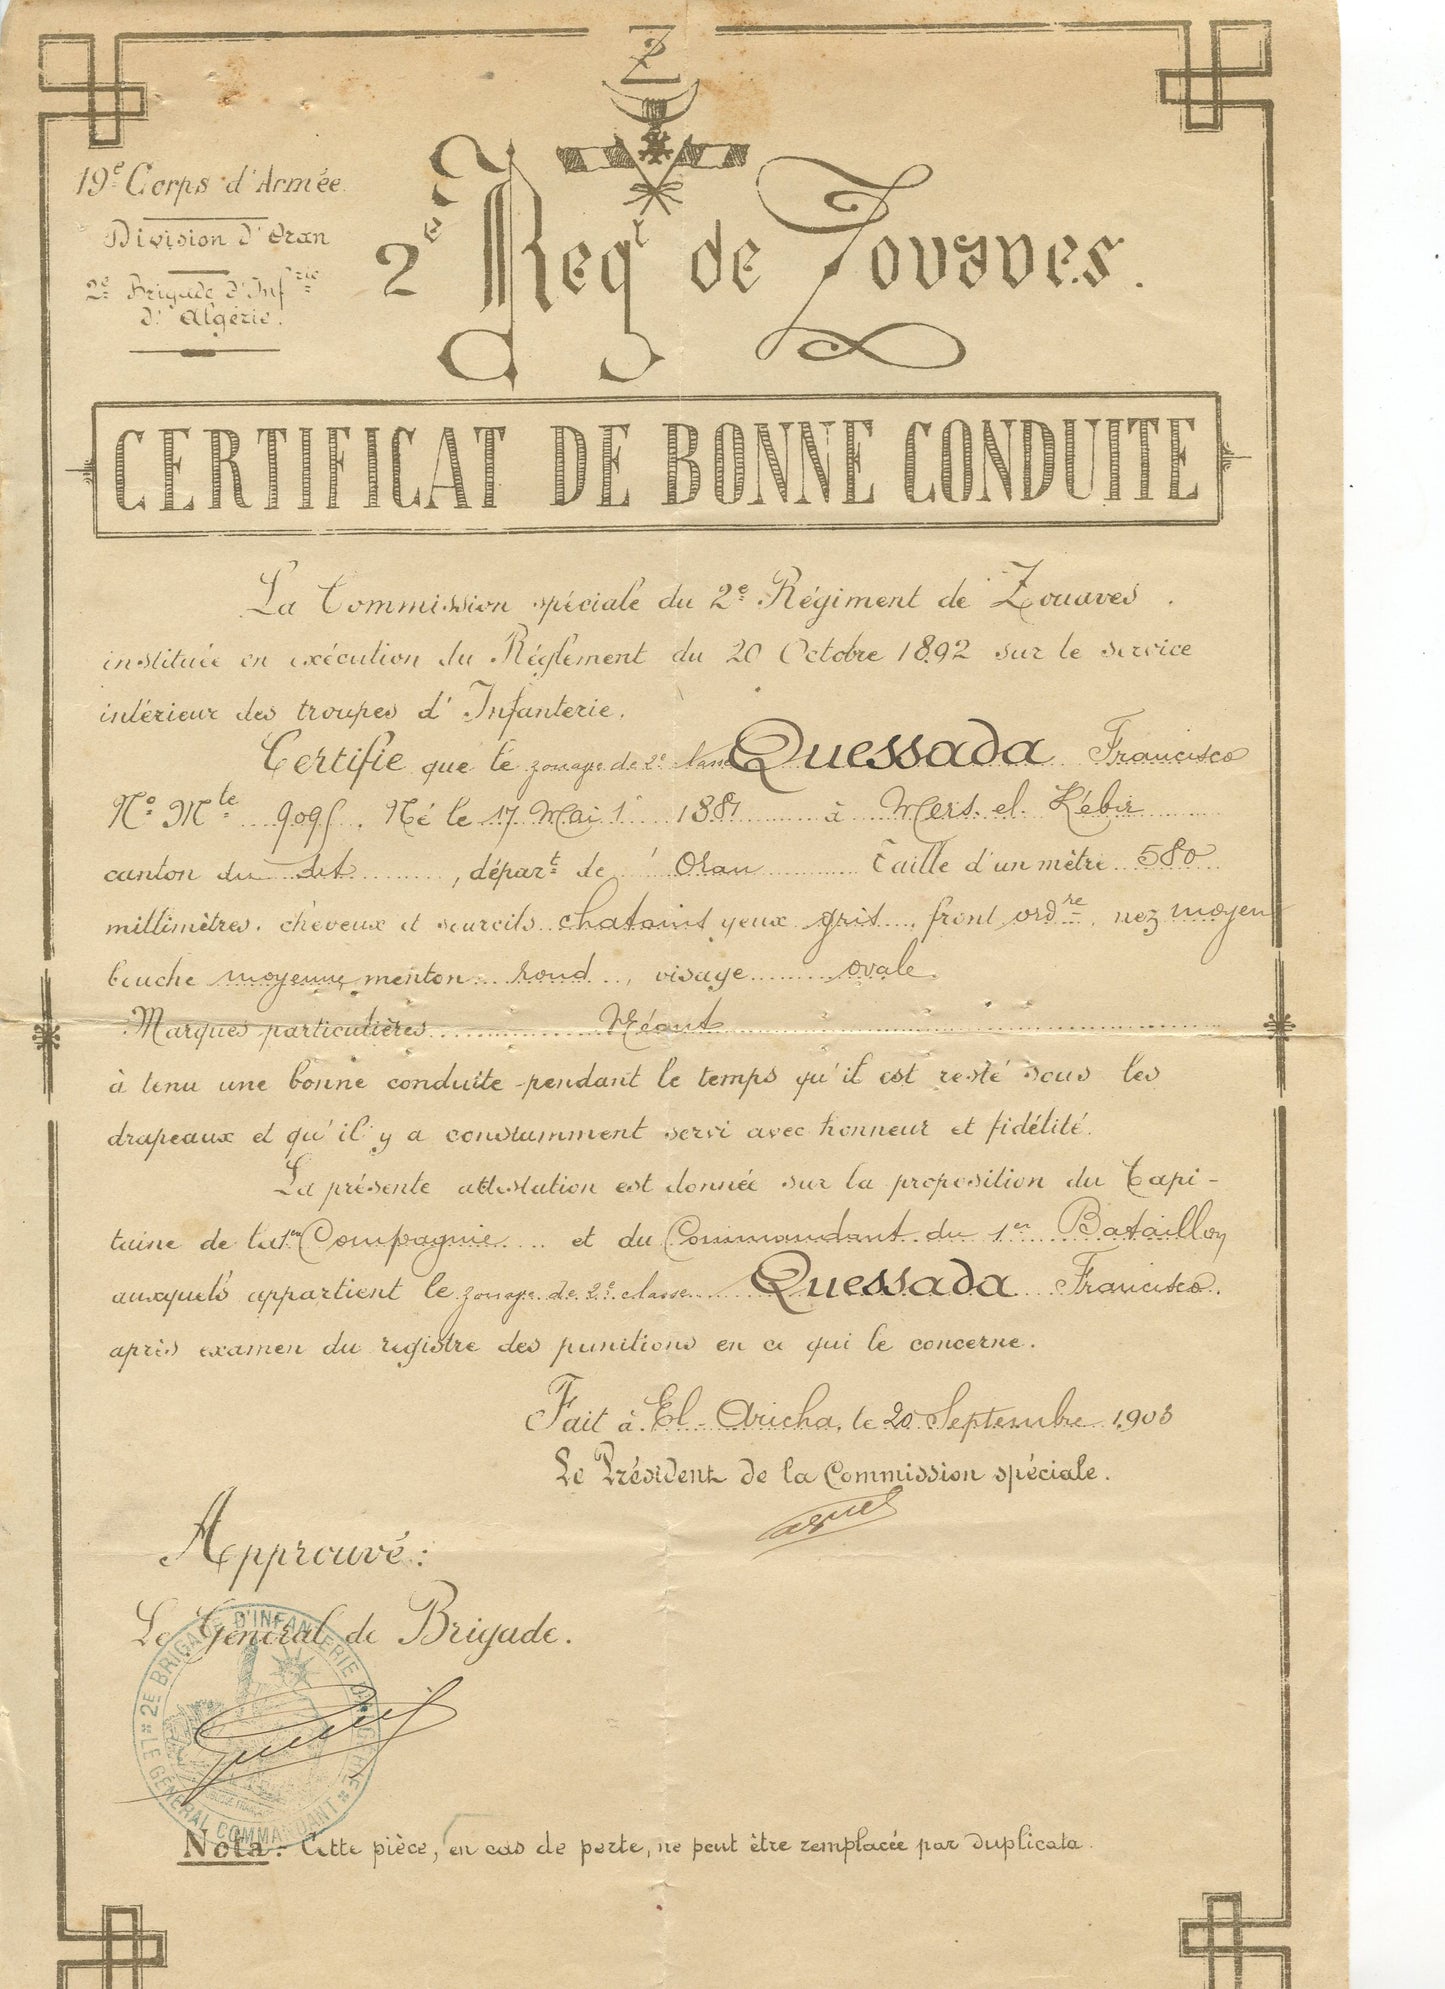 Z
19e Corps d'Armée
Division d'Oran
2e Brigade d'Infrie
d'Algérie.
2e Regt de Zouaves.
CERTIFICAT DE BONNE CONDUITE
La Commission spéciale du 2e Régiment de Zouaves.
instituée en exécution du Réglement du 20 Octobre 1892 sur le service
intérieur des troupes d'Infanterie.
Certifie que le zouave de 2e classe Quessada Francisco
No Mle Né le 17 Mai 1881 à Mers. el. Kébir
canton du dit, départt de Oran Taille d'un mètre 580
millimètres. cheveux et sourcils chatains yeux gris. front ordre. nez moyen
bouche moyenne menton rond, visage ovale.
Marques particulières Néant
à tenu une bonne conduite pendant le temps qu'il est resté sous les
drapeaux et qu'il y a constamment servi avec honneur et fidélité.
La présente attestation est donnée sur la proposition du Capi-
taine de la 1re Compagnie et du Commandant du 1er Bataillon
auxquels appartient le zouave de 2e classe Quessada Francisco.
après examen du registre des punitions en ce qui le concerne.
Fait à El-Aricha, le 20 Septembre 1903
Le Président de la Commission spéciale.
Approuvé:
Le Général de Brigade.
2E BRIGADE D'INFANTERIE D'ALGÉRIE
LE GÉNÉRAL COMMANDANT
Nota: Cette pièce, en cas de perte, ne peut être remplacée par duplicata.